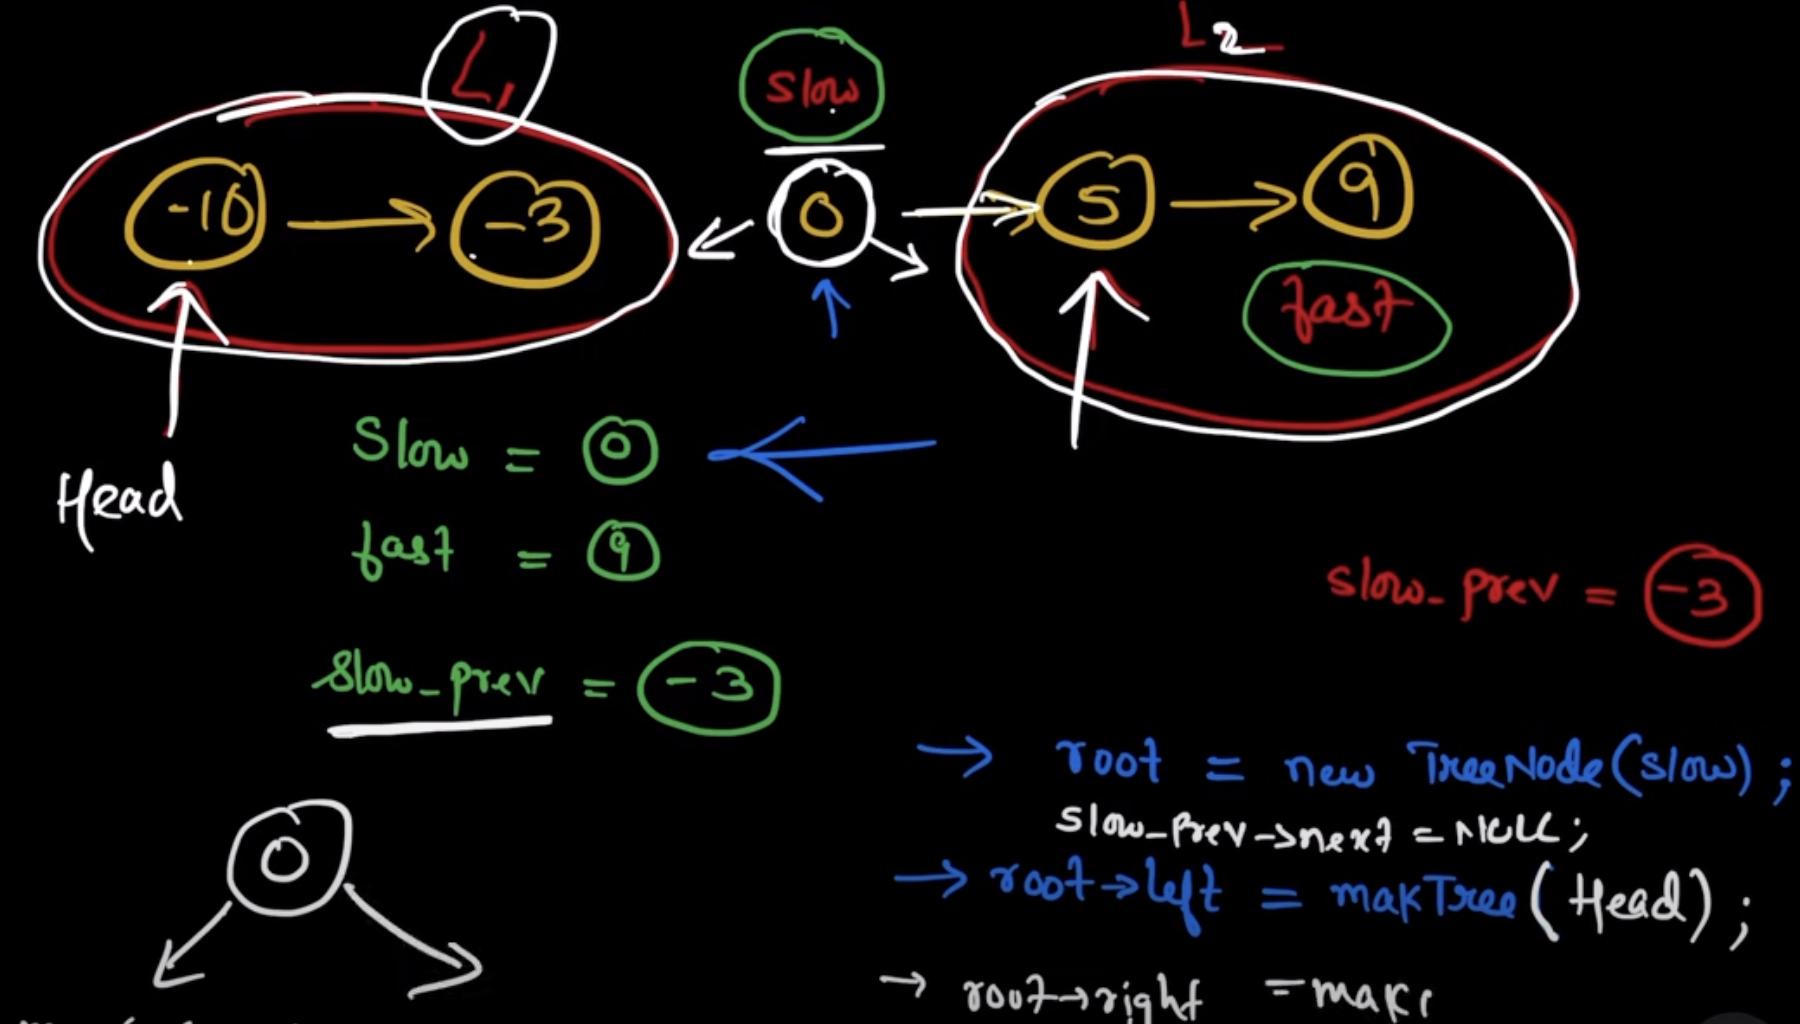 L1
slow
L2
-10 → -3
0 → 5 → 9
fast
Head
Slow = 0
fast = 9
slow_prev = -3
slow_prev = -3
→ root = new TreeNode(slow);
slow_prev->next = NULL;
→ root→left = makTree(Head);
0
→ root→right = make